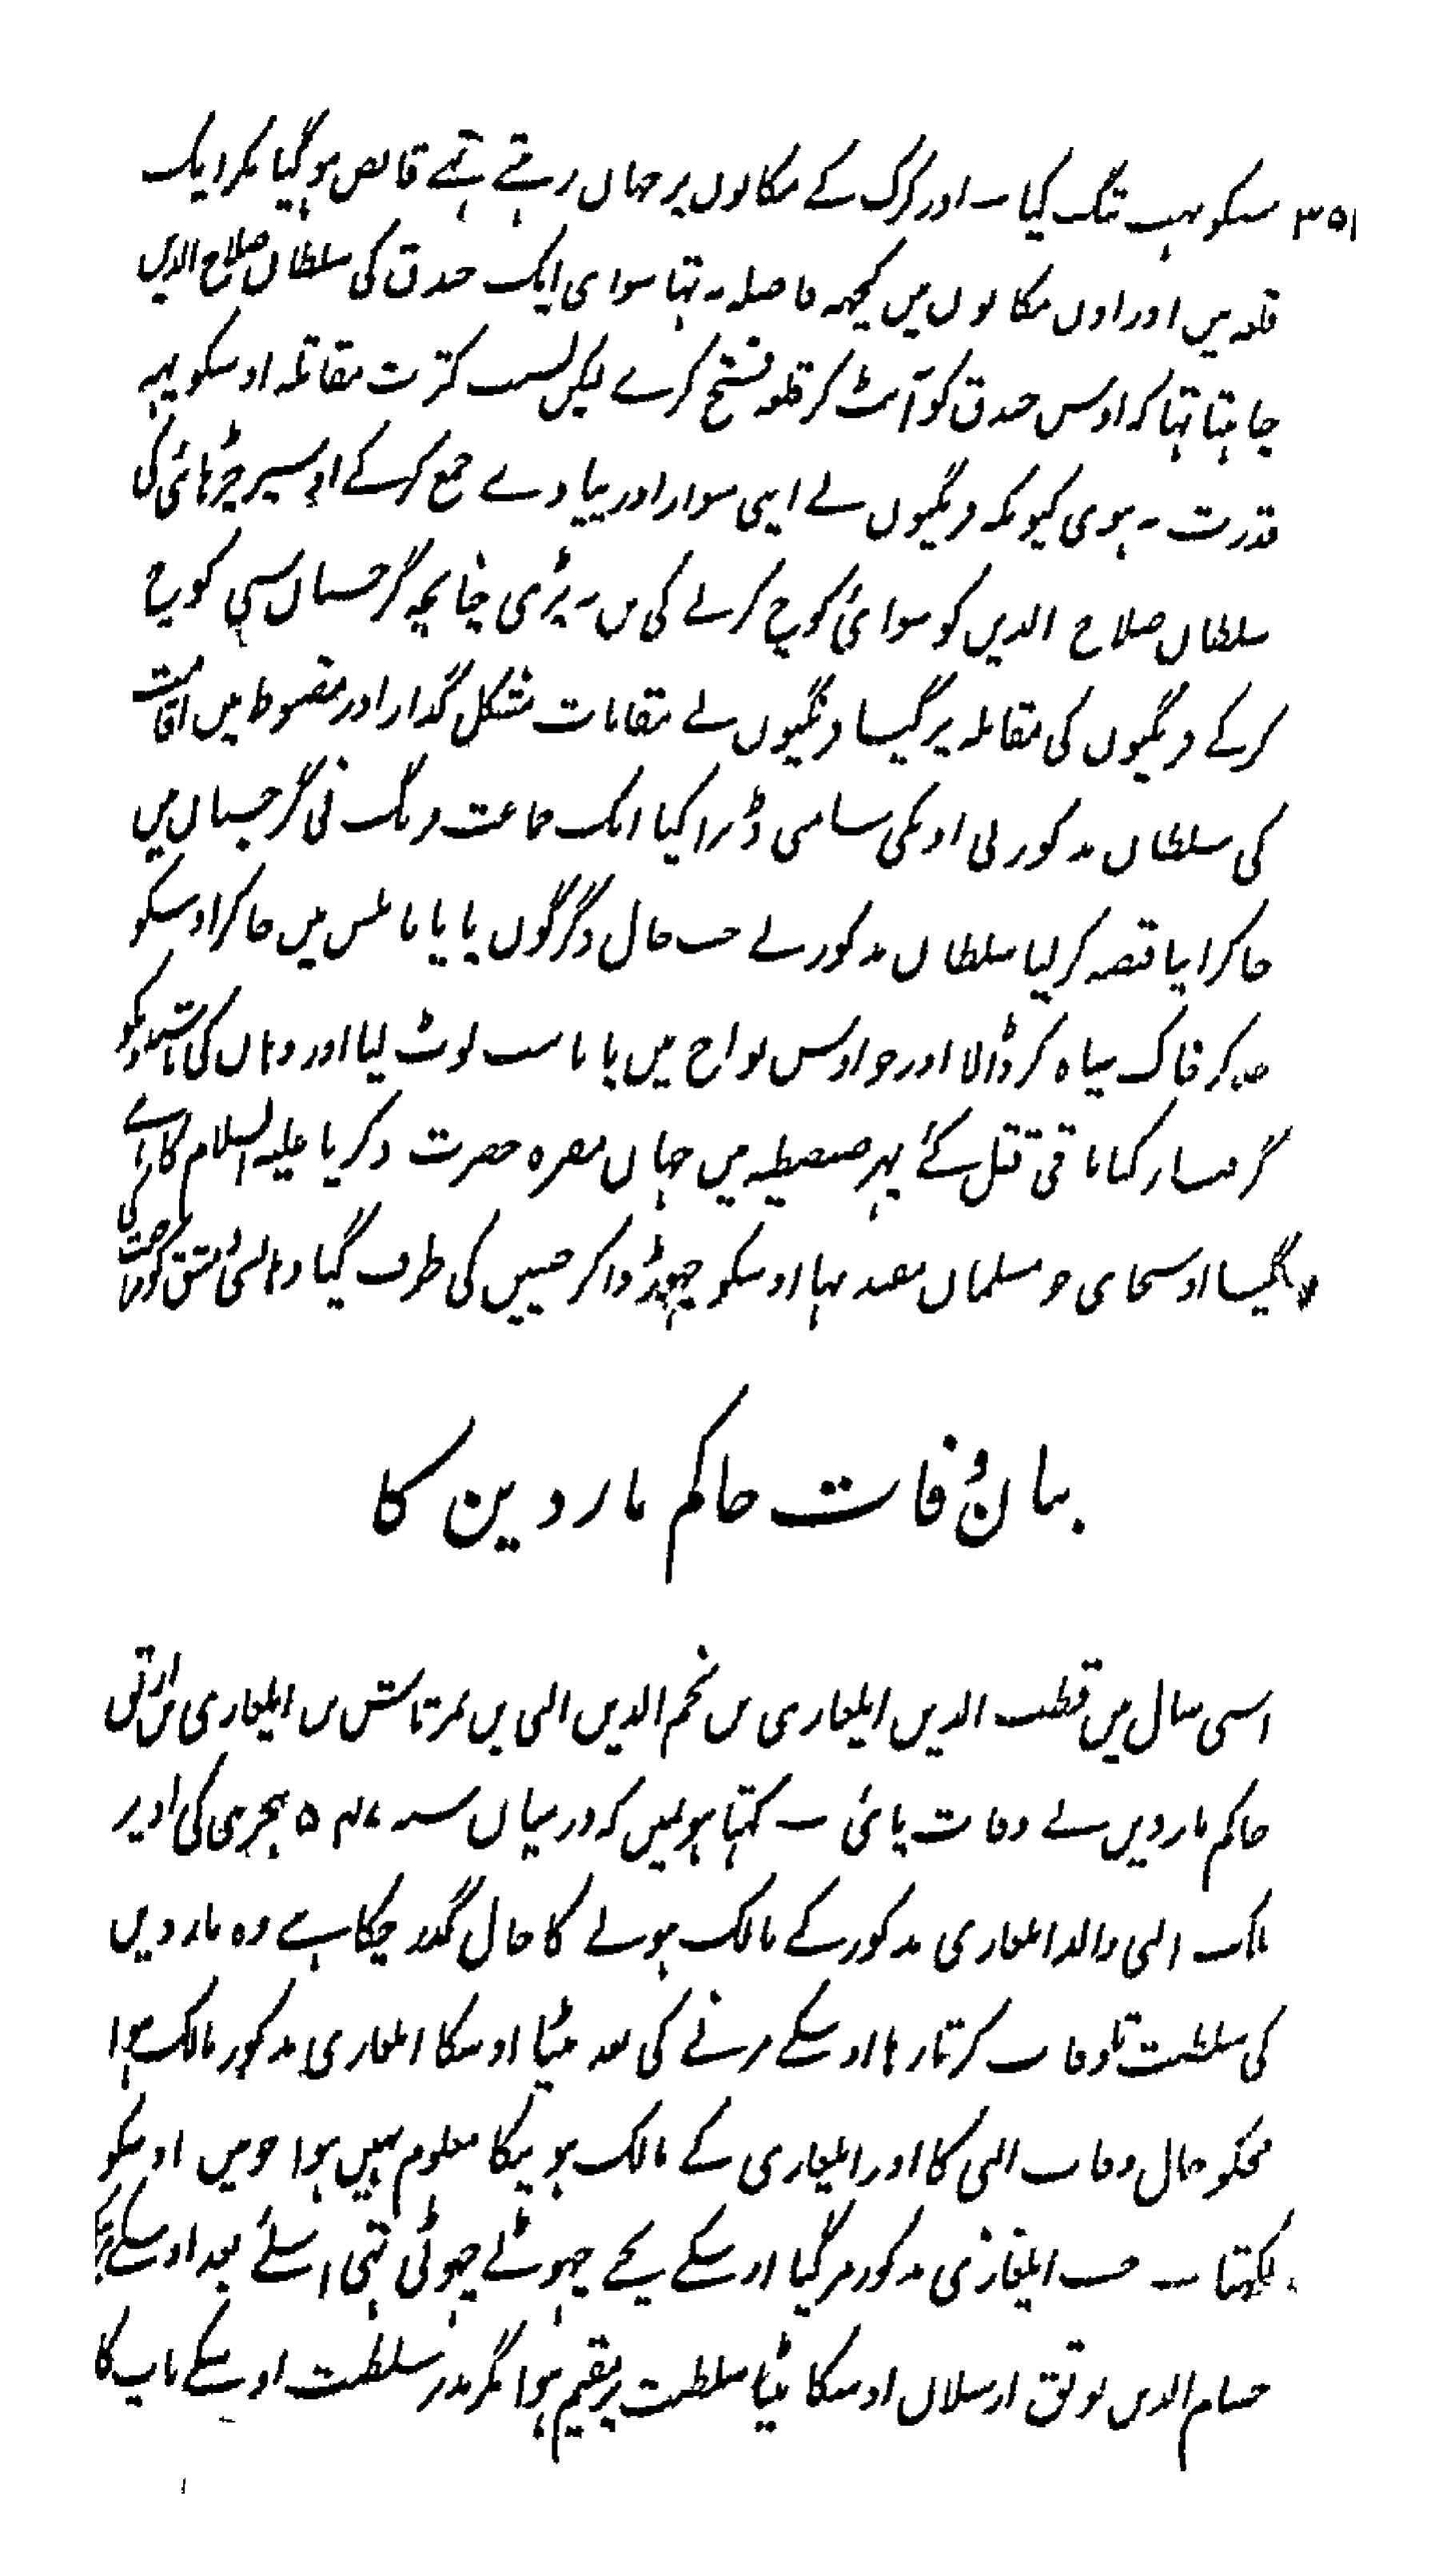 ۳۵۱ سکو بہت تنگ کیا۔ اور کرک کے مکانوں پر جہاں رہتے تہے قابض ہوگیا مگر ایک
قلعہ میں اور اون مکانوں میں کچہہ فاصلہ نہ تہا سوای ایک خندق کی سلطان صلاح الدین
چاہتا تہا کہ اوس خندق کو آنٹ کر قلعہ فتح کرے لیکن بسبب کثرت مقاتلہ اوسکو یہہ
قدرت نہ ہوی کیونکہ فرنگیوں نے اپنی سوار اور پیادے جمع کرکے اوسپر چڑہائی کی
سلطان صلاح الدین کو سوائی کوچ کرنے کی بن نہ پڑی چنانچہ کرخسان سی کوچ
کرکے فرنگیوں کی مقابلہ پر گیا فرنگیوں نے مقامات مشکل گذار اور مضبوط میں اقامت
کی سلطان مذکور نی اونکی سامنی ڈرا کیا ایک جماعت فرنگ نی کرخسان میں
جاکر اپنا قبضہ کرلیا سلطان مذکور نے جب حال دگرگوں پایا نابلس میں جاکر اوسکو
کر خاک سیاہ کر ڈالا اور جو اوس نواح میں پایا سب لوٹ لیا اور وہاں کی
گرفتار کیا باقی قتل کئے پہر صبصطیہ میں جہاں مقبرہ حضرت ذکریا علیہ السلام کا ہے
گیا اوسجای جو مسلمان مقید تہا اوسکو چہوڑوا کر جنین کی طرف گیا وہانسی دمشق کو مراجعت کی
بیان وفات حاکم ماردین کا
اسی سال میں قطب الدین ایلغازی بن نجم الدین البی بن تمرتاش بن ایلغازی بن ارتق
حاکم ماردین نے وفات پائی ۔ کہتا ہونمیں کہ درمیان سنہ ۵۴۷ ہجری کی اوپر
ملک البی والد ایلغازی مذکور کے مالک ہونے کا حال گذر چکا ہے وہ ماردین
کی سلطنت تا وفات کرتا رہا اوسکے مرنے کی بعد بیٹا اوسکا ایلغازی مذکور مالک ہوا
مجکو حال وفات البی کا اور ایلغازی کے مالک ہونیکا معلوم نہیں ہوا جو میں اوسکو
لکہتا ۔ جب ایلغازی مذکور مر گیا اوسکے بچے چہوٹے چہوٹی تہی اسلئے بعد اوسکے
حسام الدین بولق ارسلان اوسکا بیٹا سلطنت پر مقیم ہوا مگر مدبر سلطنت اوسکے باپ کا